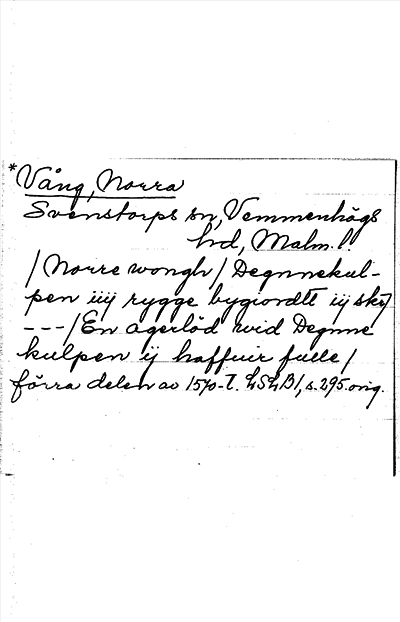 *Vång, Norra
Svenstorps sn, Vemmenhögs
hd, Malm. l.
/ Norre wongh / Degnnekul-
pen iiij rygge bygiordtt iij skp
--- / En agerlöd wid Degnne
kulpen ij haffuir fulle /
förra delen av 1570-t. LSLB1, s. 295. orig.